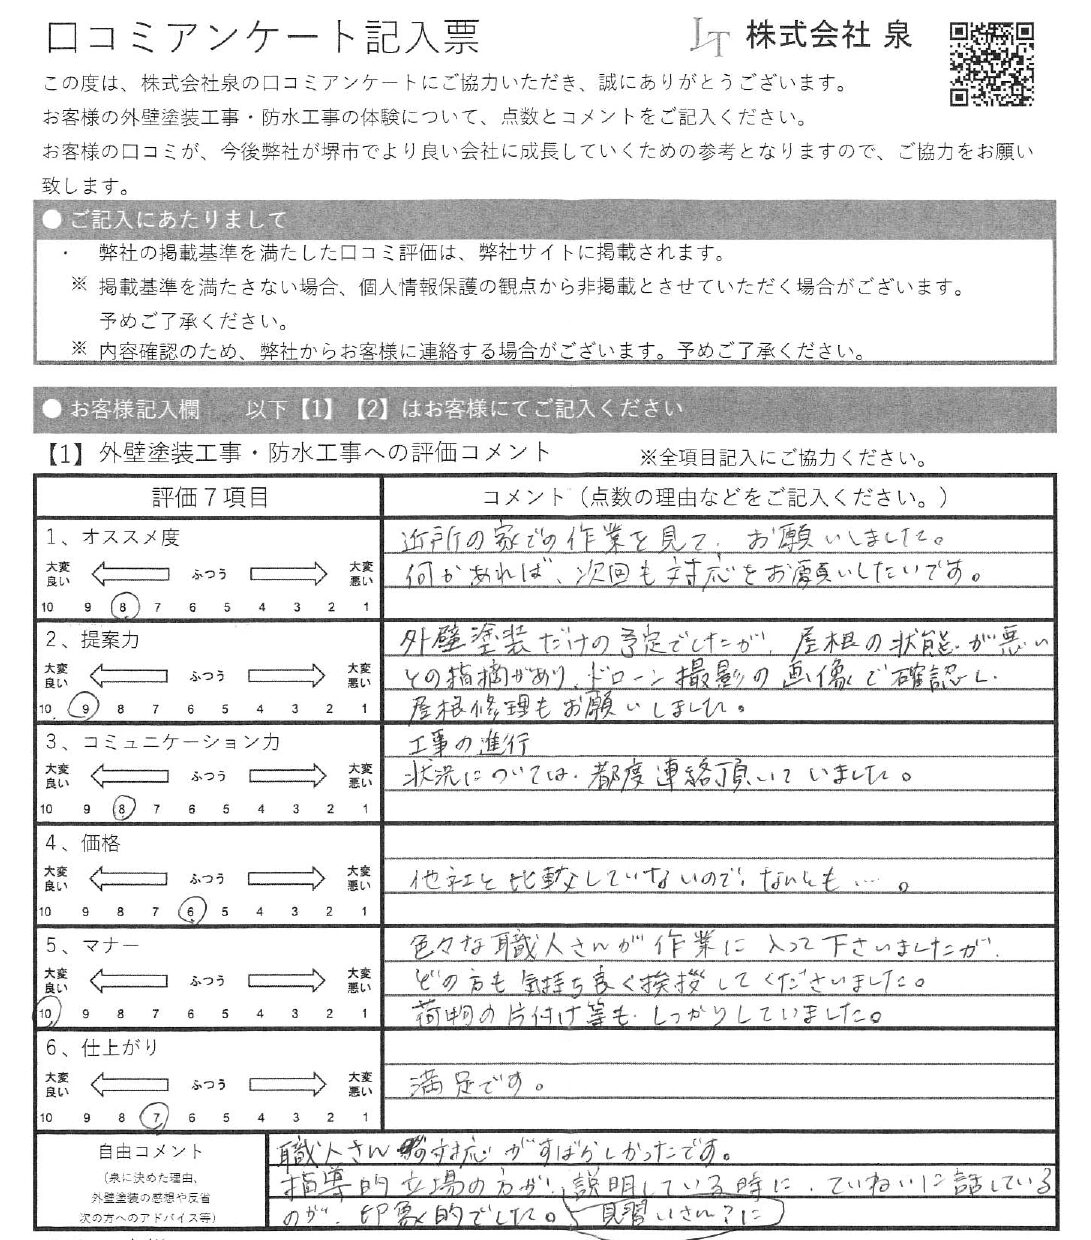 口コミアンケート記入票
株式会社 泉
この度は、株式会社泉の口コミアンケートにご協力いただき、誠にありがとうございます。
お客様の外壁塗装工事・防水工事の体験について、点数とコメントをご記入ください。
お客様の口コミが、今後弊社が堺市でより良い会社に成長していくための参考となりますので、ご協力をお願い
致します。
● ご記入にあたりまして
・ 弊社の掲載基準を満たした口コミ評価は、弊社サイトに掲載されます。
※ 掲載基準を満たさない場合、個人情報保護の観点から非掲載とさせていただく場合がございます。
予めご了承ください。
※ 内容確認のため、弊社からお客様に連絡する場合がございます。予めご了承ください。
● お客様記入欄 以下【1】【2】はお客様にてご記入ください
【1】外壁塗装工事・防水工事への評価コメント ※全項目記入にご協力ください。
評価7項目 コメント（点数の理由などをご記入ください。）
1、オススメ度
大変良い ふつう 大変悪い
10 9 8 7 6 5 4 3 2 1
近所の家での作業を見て、お願いしました。
何かあれば、次回も対応をお願いしたいです。
2、提案力
大変良い ふつう 大変悪い
10 9 8 7 6 5 4 3 2 1
外壁塗装だけの予定でしたが、屋根の状態が悪い
との指摘があり、ドローン撮影の画像で確認し、
屋根修理もお願いしました。
3、コミュニケーション力
大変良い ふつう 大変悪い
10 9 8 7 6 5 4 3 2 1
工事の進行
状況については、都度連絡頂いていました。
4、価格
大変良い ふつう 大変悪い
10 9 8 7 6 5 4 3 2 1
他社と比較していないので、なんとも…。
5、マナー
大変良い ふつう 大変悪い
10 9 8 7 6 5 4 3 2 1
色々な職人さんが作業に入って下さいましたが、
どの方も気持ち良く挨拶してくださいました。
荷物の片付け等も、しっかりしていました。
6、仕上がり
大変良い ふつう 大変悪い
10 9 8 7 6 5 4 3 2 1
満足です。
自由コメント
（泉に決めた理由、
外壁塗装の感想や反省
次の方へのアドバイス等）
職人さんの対応がすばらしかったです。
指導的立場の方が、説明している時に、ていねいに話している
のが、印象的でした。 見習いさん?に